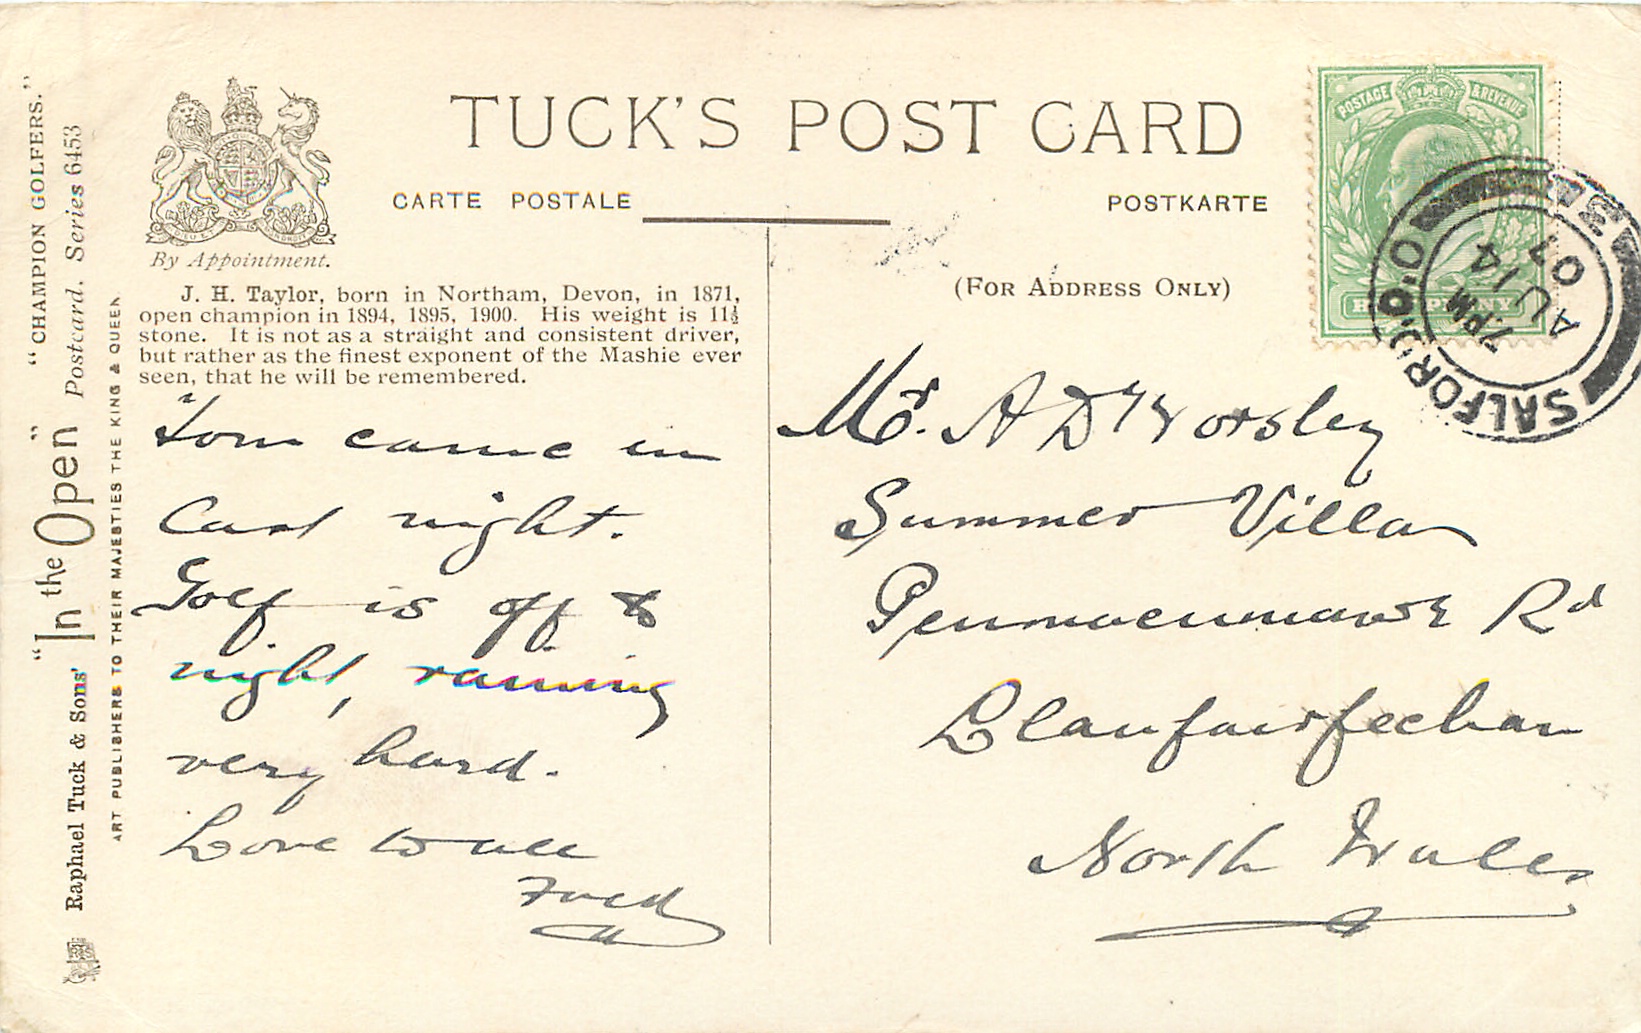 TUCK'S POST CARD
CARTE POSTALE
POSTKARTE
By Appointment.
(FOR ADDRESS ONLY)
J. H. Taylor, born in Northam, Devon, in 1871,
open champion in 1894, 1895, 1900. His weight is 11½
stone. It is not as a straight and consistent driver,
but rather as the finest exponent of the Mashie ever
seen, that he will be remembered.
Tom came in
last night.
Golf is off to
night, raining
very hard.
Love to all
Fred
Mr. A D Worsley
Summer Villa
Penmaenmawr Rd
Llanfairfechan
North Wales
POSTAGE & REVENUE
HALFPENNY
SALFORD
7.PM
AU 14
07
Raphael Tuck & Sons' "In the Open" "CHAMPION GOLFERS."
Postcard. Series 6453
ART PUBLISHERS TO THEIR MAJESTIES THE KING & QUEEN